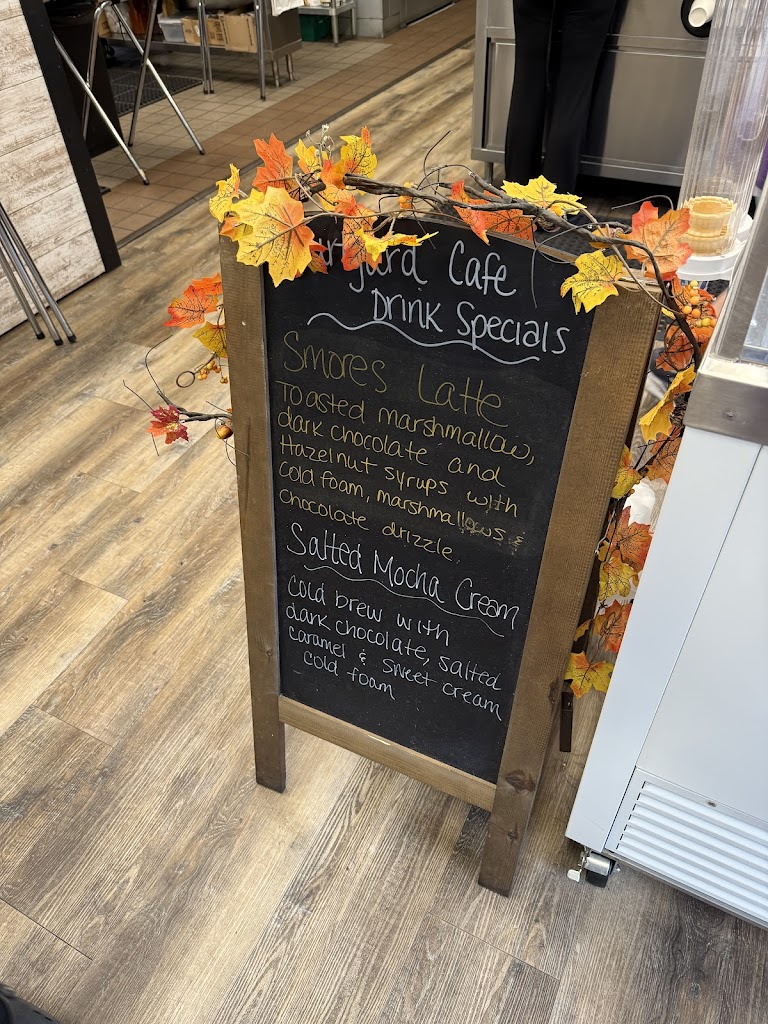 Cafe
Drink Specials
Smores Latte
Toasted marshmallow,
dark chocolate and
Hazelnut syrups with
cold foam, marshmallows &
chocolate drizzle.
Salted Mocha Cream
cold brew with
dark chocolate, salted
caramel & sweet cream
cold foam